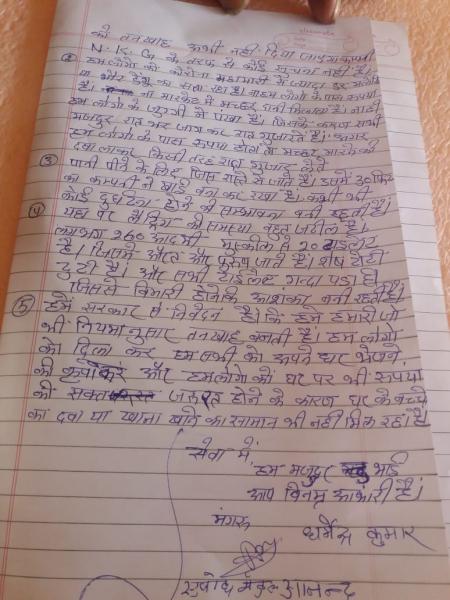 को तनखाह अभी नहीं दिया जाएगा कम्पनी
N.K.G. के तरफ से कोई सुचना नहीं है।
② हम लोगों को कोरोना महामारी से ज्यादा डर मलेरिया
या और डेंगू का सता रहा है। ना हम लोगों के पास रूपया
है। ना मारकेट में मच्छर दानी मिलता है। नाही
हम लोगों के जुग्गी में पंखा है। जिसके कारण सभी
मजदुर रात भर जाग कर रात गुजारते हैं। अगर
हम लोगों के पास रूपया होता तो मच्छर मारने की
दवा लाकर किसी तरह रात गुजार लेते
③ पानी पीने के लिए जिस रास्ते से जाते हैं। उसमें 30 फिट
का कम्पनी ने खाई बना कर रखा है। कभी भी
कोई दुर्घटना होने की सम्भावना बनी रहती है।
④ यहाँ पर लैट्रिंग की समस्या बहुत जटील है।
लगभग 260 आदमी मुस्कील से 20 टाइलेट
है। जिसमे औरत और पुरूष जाते हैं। शेष टोटी
टुटी है। और सभी टाईलेट गन्दा पड़ा है
जिससे बिमारी होने कि आशंका बनी रहती है।
⑤ हमें सरकार से निवेदन है। कि हमें हमारी जो
भी नियमानुसार तनखाह बनती है। हम लोगों
को दिला कर हम सभी को अपने घर भेजने
की कृपा करें और हमलोगों को घर पर भी रूपयों
की सक्त जरूरत होने के कारण घर के बच्चे
का दवा या खाना खाने का सामान भी नहीं मिल रहा है
सेवा में,
हम मजदुर भाई
आप विनम्र आभारी हैं।
मंगरू धर्मेन्द्र कुमार
सुबोध आनन्द